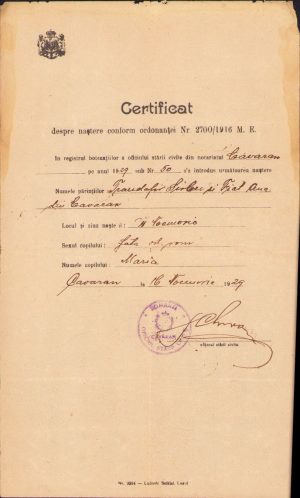 Certificat
despre naștere conform ordonanței Nr. 2700/1916 M. E.
In registrul botezaților a oficiului stării civile din notariatul Cavaran
pe anul 1929 sub Nr. 50 s'a introdus următoarea naștere
Numele părinților Trandafir
din Cavaran
Locul și ziua nașterii:
Sexul copilului:
Numele copilului: Maria
Cavaran la 16 1929
ROMANIA
CAVARAN
oficiul stării civile